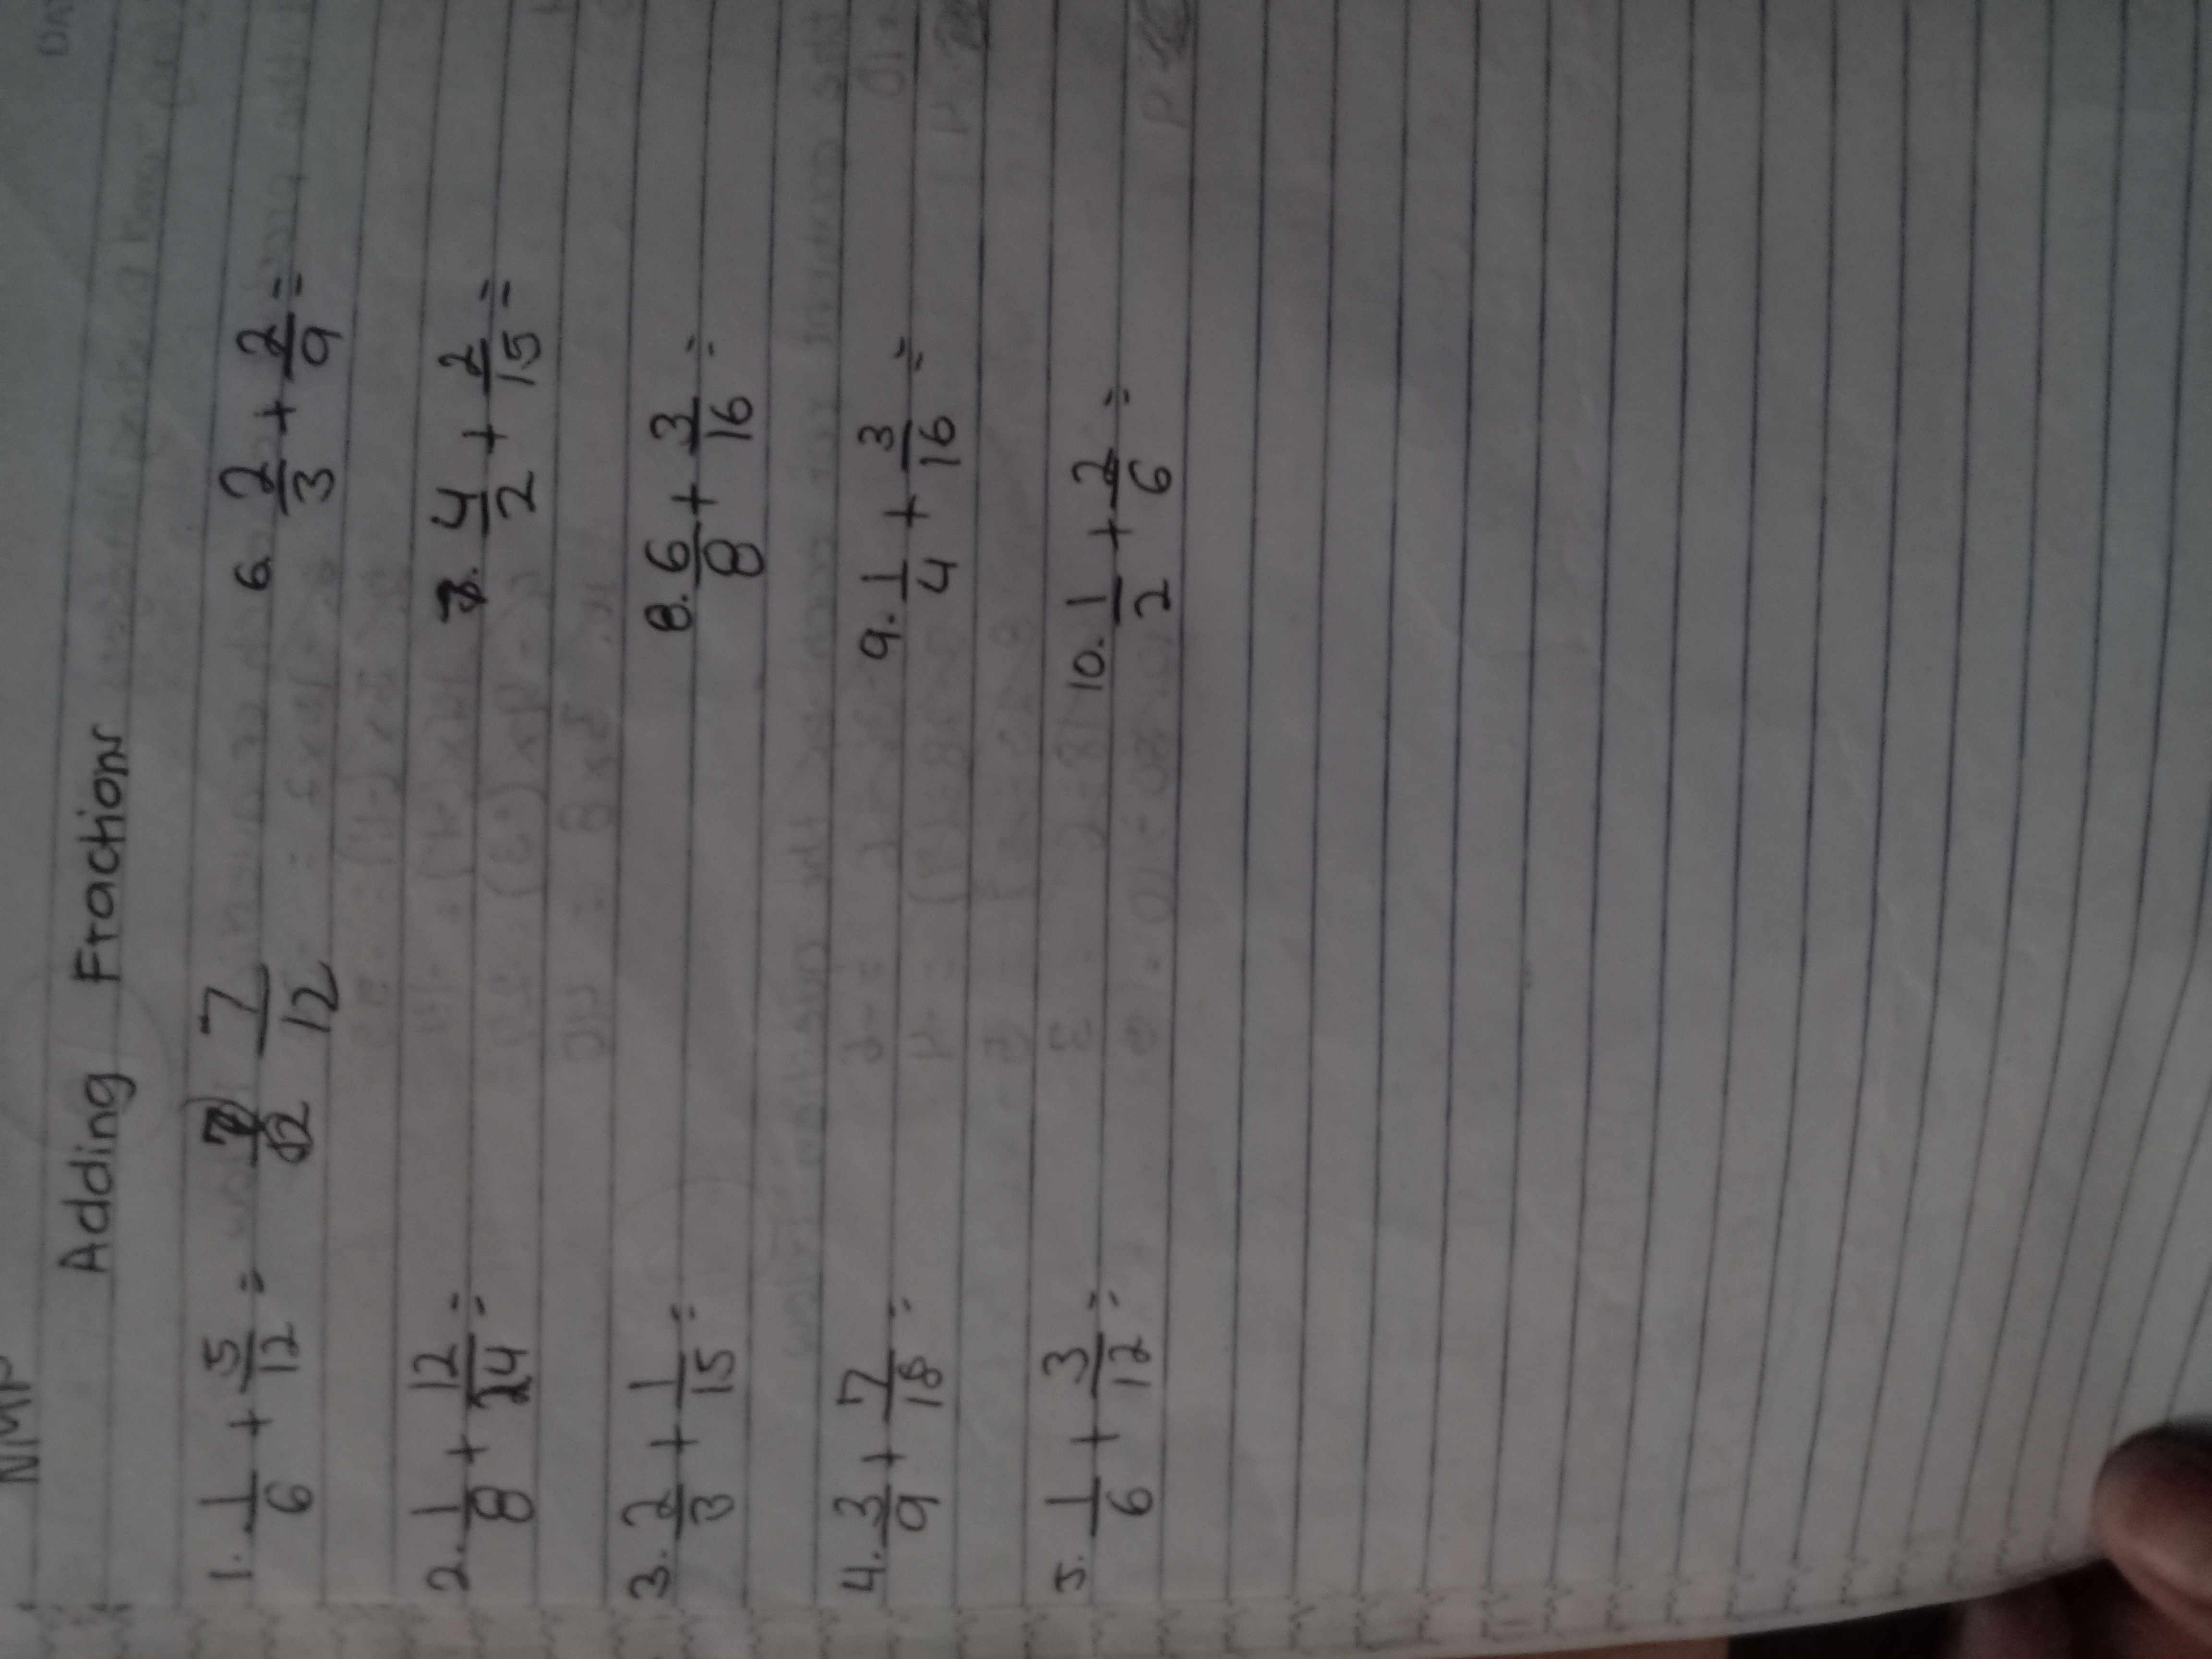 Adding Fractions
1. 1/6 + 5/12 = 7/12 7/12
2. 1/8 + 12/24 =
3. 2/3 + 1/15 =
4. 3/9 + 7/18 =
5. 1/6 + 3/12 =
6. 2/3 + 2/9 =
7. 4/2 + 2/15 =
8. 6/8 + 3/16 =
9. 1/4 + 3/16 =
10. 1/2 + 2/6 =